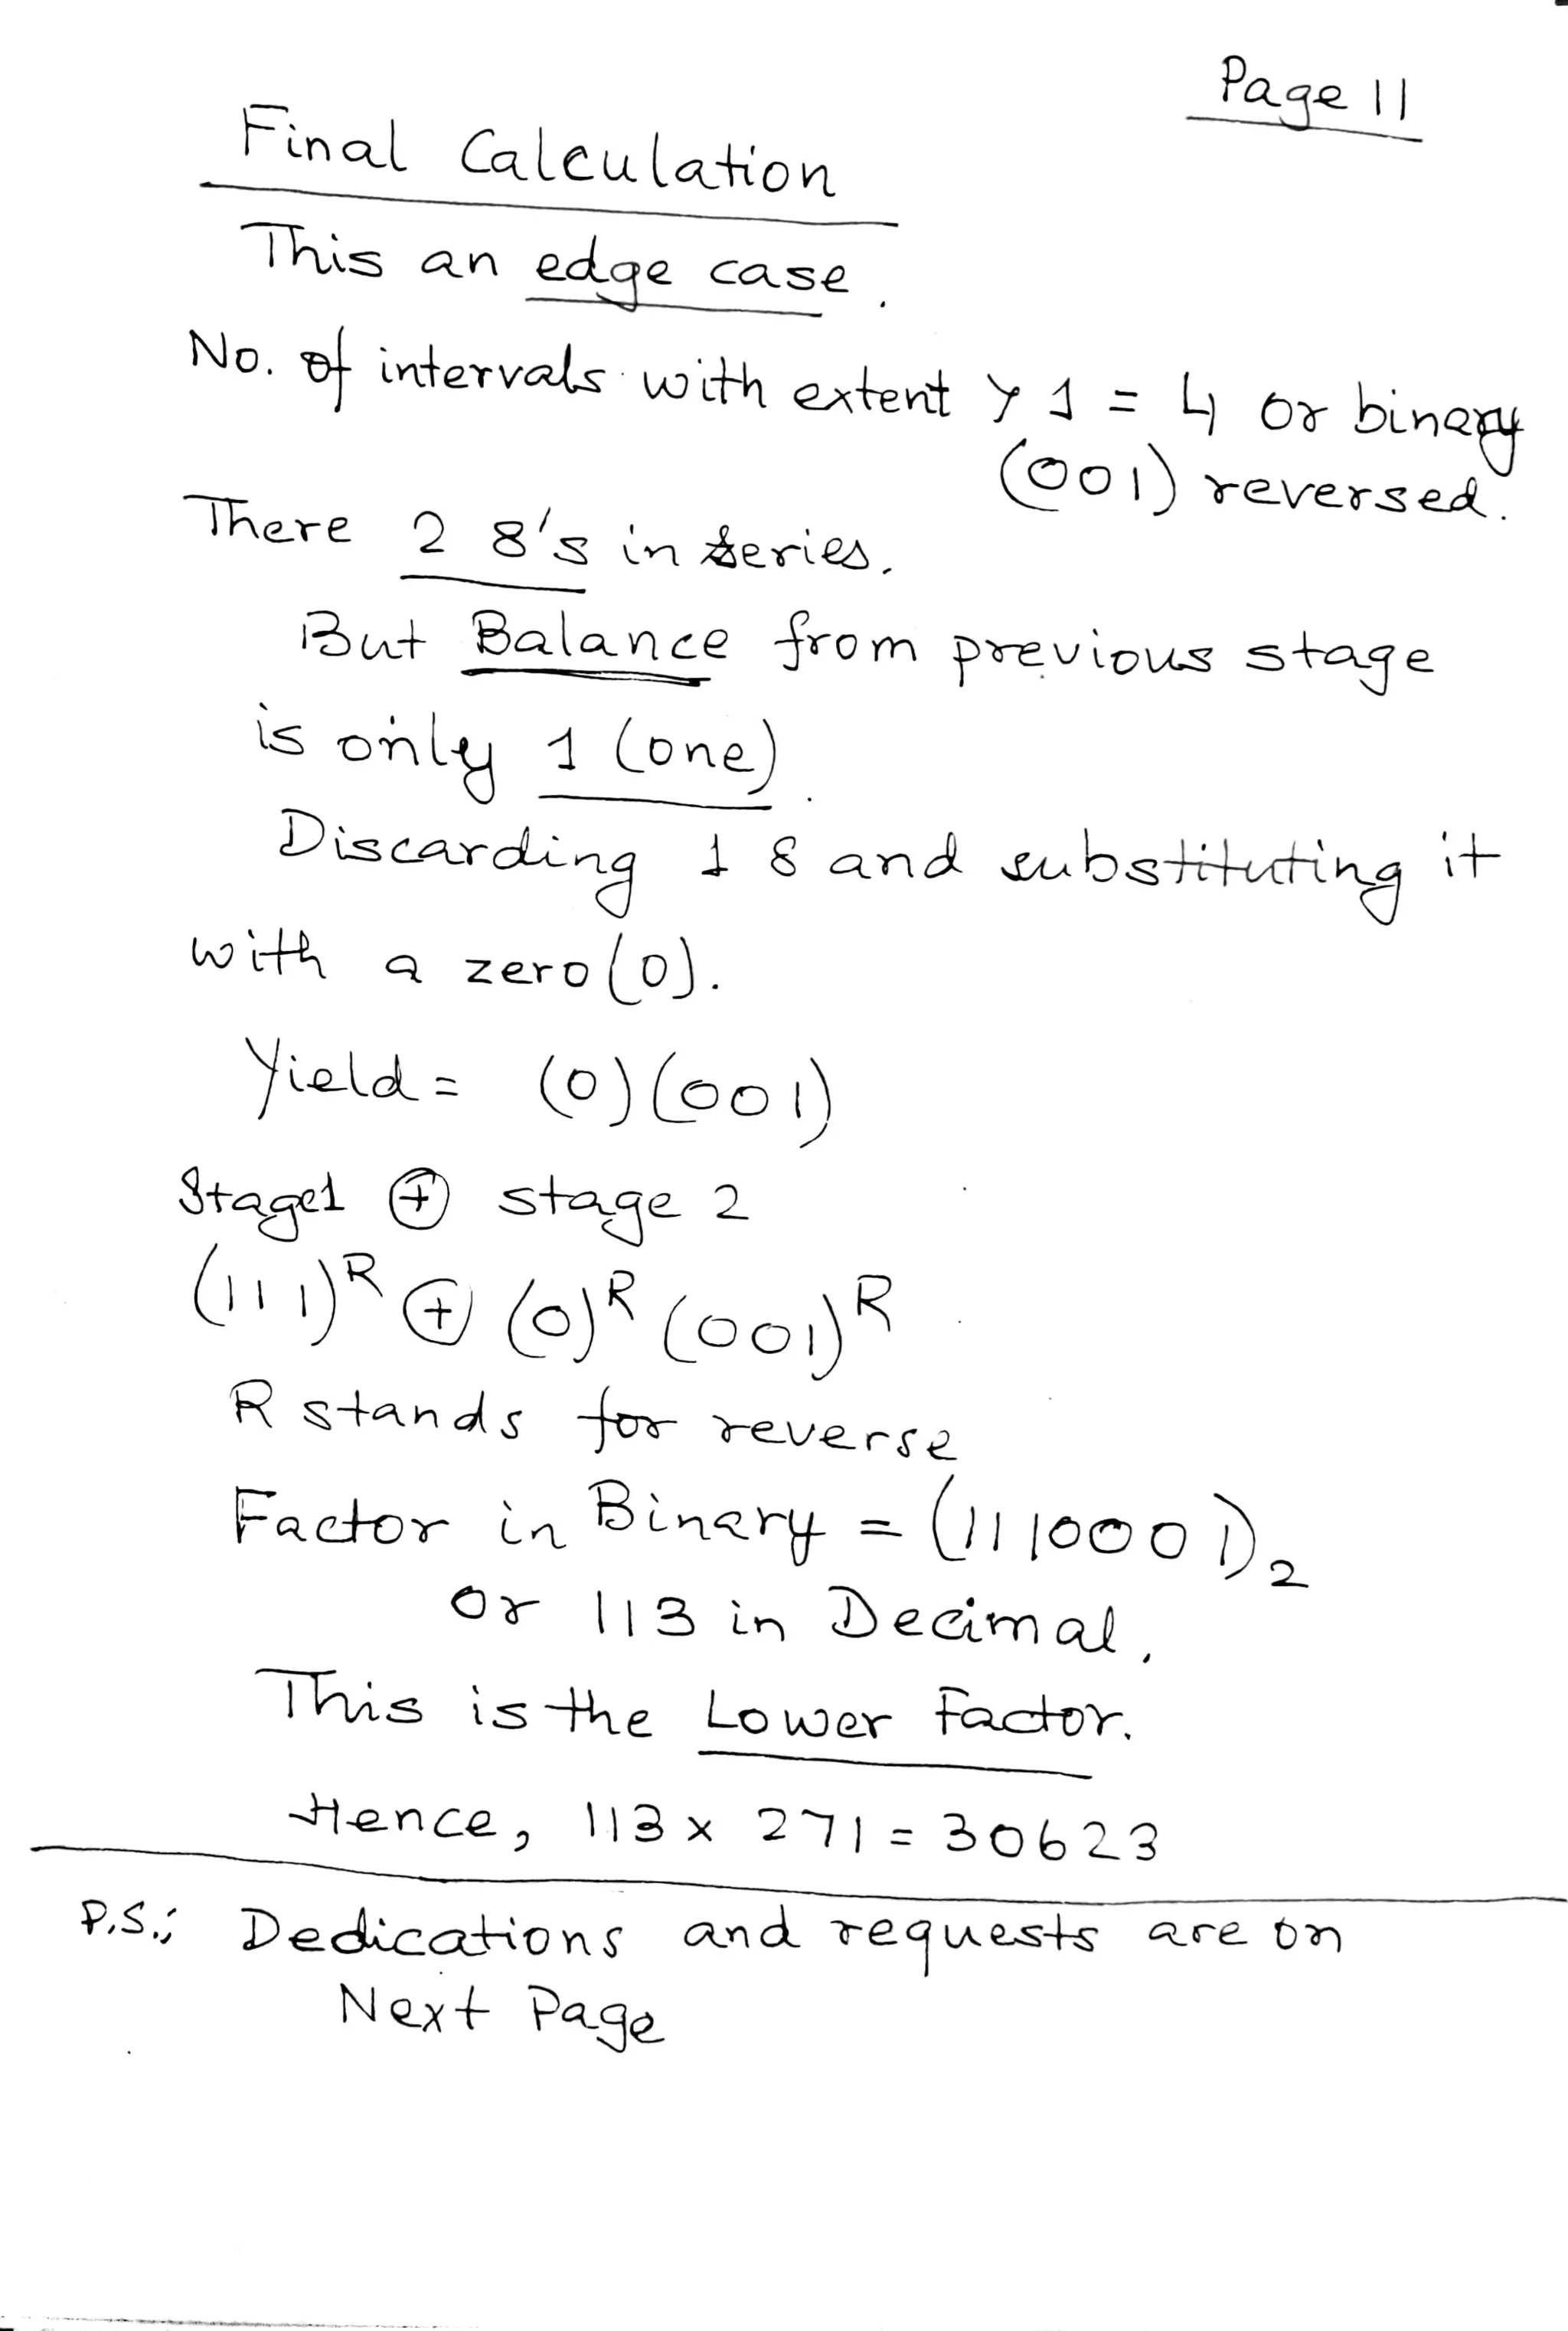 Page 11
Final Calculation
This an edge case.
No. of intervals with extent > 1 = 4 or binary
(001) reversed.
There 2 8's in series.
But Balance from previous stage
is only 1 (one).
Discarding 1 8 and substituting it
with a zero (0).
Yield = (0)(001)
Stage1 ⊕ stage 2
(111)ᴿ ⊕ (0)ᴿ (001)ᴿ
R stands for reverse
Factor in Binary = (1110001)₂
or 113 in Decimal.
This is the Lower Factor.
Hence, 113 x 271 = 30623
P.S.: Dedications and requests are on
Next Page